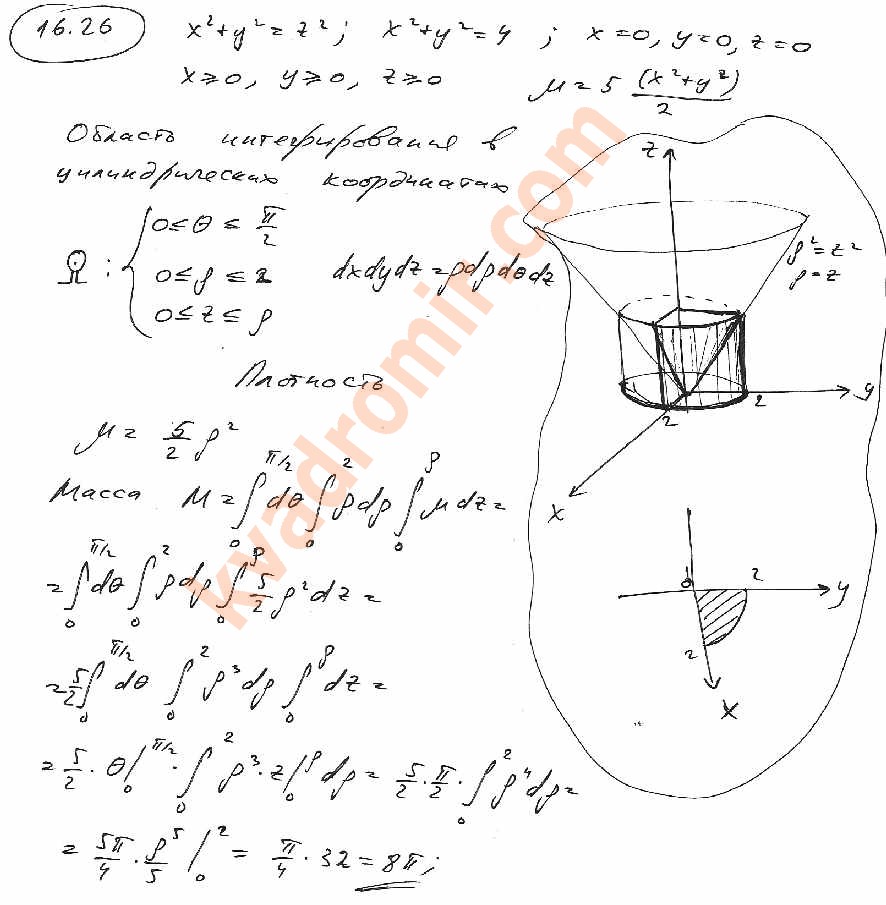 16.26 x²+y²=z²; x²+y²=4; x=0, y=0, z=0
x≥0, y≥0, z≥0 μ=5 (x²+y²)/2
Область интегрирования в
цилиндрических координатах
Ω: { 0≤θ≤π/2
0≤ρ≤2 dxdydz=ρdρdθdz
0≤z≤ρ
Плотность
μ= 5/2 ρ²
Масса M=∫₀^(π/2) dθ ∫₀^2 ρdρ ∫₀^ρ μdz=
=∫₀^(π/2) dθ ∫₀^2 ρdρ ∫₀^ρ 5/2 ρ²dz=
=5/2 ∫₀^(π/2) dθ ∫₀^2 ρ³dρ ∫₀^ρ dz=
=5/2 · θ|₀^(π/2) · ∫₀^2 ρ³·z|₀^ρ dρ= 5/2·π/2·∫₀^2 ρ⁴dρ=
= 5π/4 · ρ⁵/5 |₀^2 = π/4 · 32 = 8π;
z
ρ²=z²
ρ=z
y
2
2
x
0 2 y
2
x
kvadromir.com